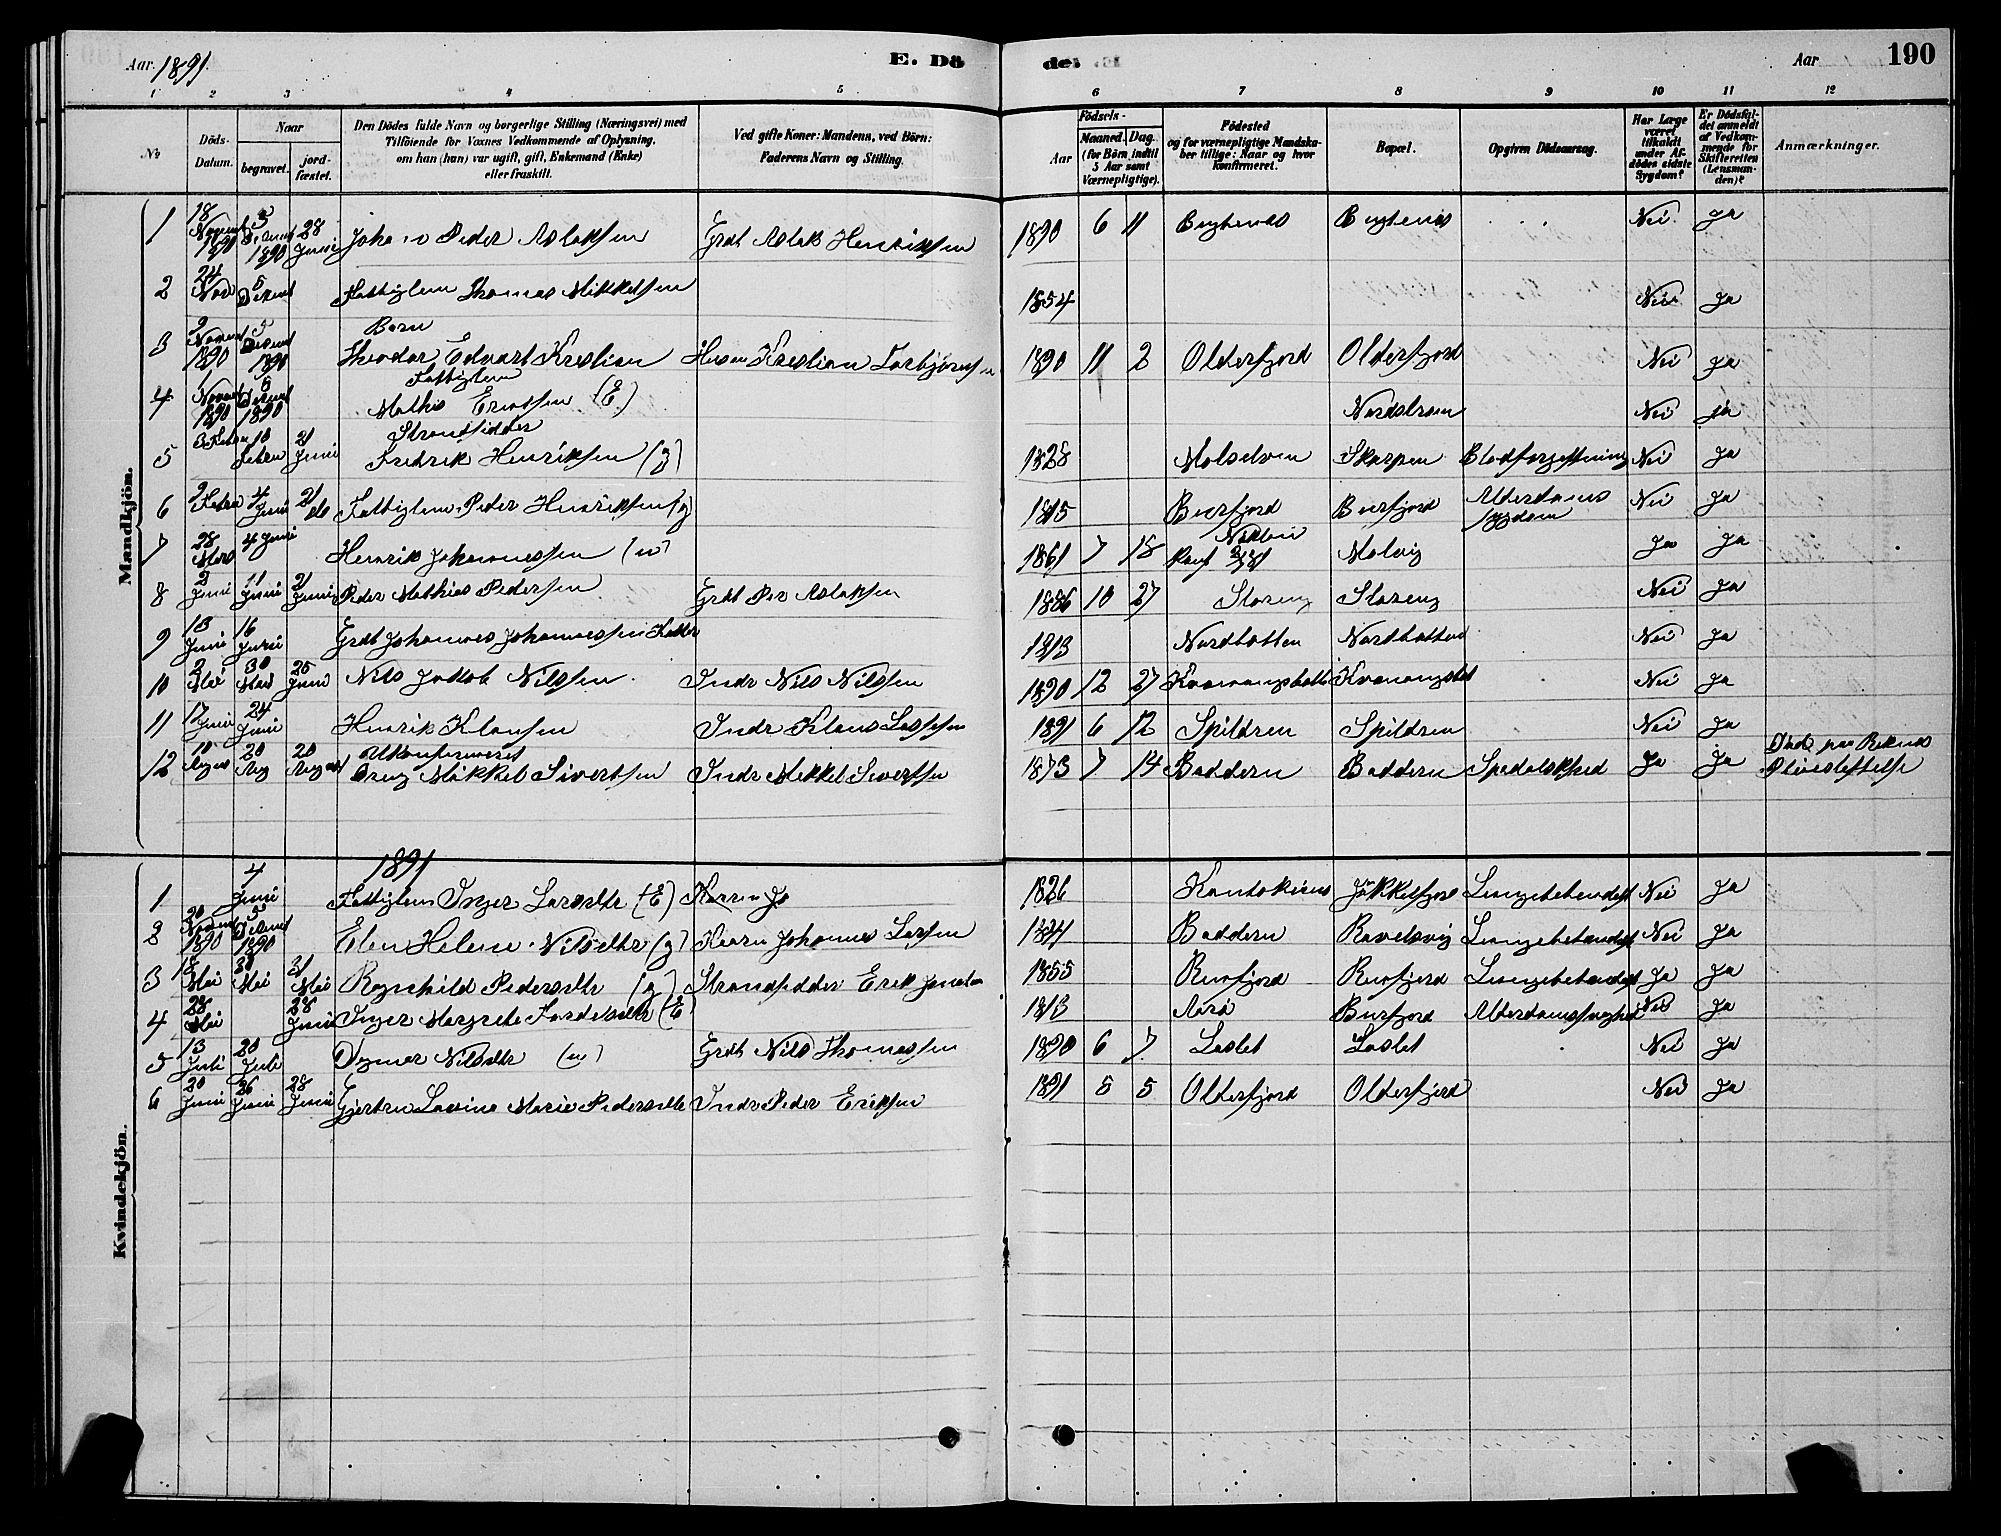 Aar 1891.
E. Dö
de. E.
Aar
190
1 2 3 4 5 6 7 8 9 10 11 12
No
Döds-Datum.
Naar
begravet.
jord-fæstet.
Den Dödes fulde Navn og borgerlige Stilling (Næringsvei) med
Tilföiende for Voxnes Vedkommende af Oplysning,
om han (hun) var ugift, gift, Enkemand (Enke)
eller fraskilt.
Ved gifte Koner: Mandens, ved Börn:
Faderens Navn og Stilling.
Födsels-
Aar
Maaned. Dag.
(for Börn indtil
5 Aar samt
Værnepligtige).
Födested
og for værnepligtige Mandska-
ber tillige: Naar og hvor
konfirmeret.
Bopæl.
Opgiven Dödsaarsag.
Har Læge
været
tilkaldt
under Af-
dödes sidste
Sygdom?
Er Dödsfal-
det anmeldt
af Vedkom-
mende for
Skifteretten
(Lensman-
den)?
Anmærkninger.
Mandkjön.
1 18 Novembr 1890 5 Desembr 1890 28 Juni Johan Peder Aslaksen Grdt Aslak Henriksen 1890 6 11 Nei Ja
2 24 Nov 5 Desembr Fattiglem Thomas Mikkelsen 1854 Nei Ja
3 2 Novembr 1890 5 Desembr 1890 Barn Theodor Edvart Krestian Husm Krestian Torbjörnsen 1890 11 2 Olderfjord Olderfjord Nei Ja
4 1 Novembr 1890 6 Desembr 1890 Fattiglem Mathis Ericksen (E) Nordstrom Nei Ja
5 3 Febru 10 Febru 21 Juni Strandsidder Fredrik Henriksen (g) 1828 Molselven Skorpen Blodforgiftning Nei Ja
6 2 Febru 4 Juni 21 do Fattiglem Peder Henriksen (g) 1815 Burfjord Burfjord Alderdoms sygdom Nei Ja
7 28 Mars 4 Juni Henrik Johannessen (u) 1861 7 18 Konf Molvig Ja Ja
8 2 Juni 11 Juni 21 Juni Peder Mathias Pedersen Grdt Per Aslaksen 1886 10 27 Storeng Storeng Nei Ja
9 13 Juni 16 Juni Grdt Johannes Johannessen 1813 Nordbotten Nordbotten Nei Ja
10 2 Mai 30 Mai 25 Juni Nils Jakob Nilssen Indr Nils Nilssen 1890 12 27 Nei Ja
11 17 Juni 24 Juni Henrik Klausen Indr Klaus Lassesen 1891 6 12 Spildren Spildren Nei Ja
12 10 August 20 Aug 20 August Ukonfirmeret Dreng Mikkel Sivertsen Indr Mikkel Sivertsen 1873 7 14 Baddern Baddern Spedalskhed Ja Ja Död paa Reknes Pleiestiftelse
Kvindekjön.
1891
1 4 Juni Fattiglem Inger Larsdtr (E) 1826 Kautokeino Jökkelfjord Lungebetendelse Nei Ja
2 20 Novembr 1890 5 Desembr 1890 Elen Helene Nilsdtr (g) Husm Johannes Larsen Baddern Ravelsvig Lungebetendelse Nei Ja
3 18 Mai 30 Mai 31 Mai Ragnhild Pedersdtr (g) Strandsidder Erik 1855 Burfjord Burfjord Lungebetendelse Ja Ja
4 28 Mai 28 Juni Inger Margrete (E) 1813 Burfjord Alderdomssvaghed Nei Ja
5 13 Juli 20 Juli Dagmar Nilsdtr (u) Grdt Nils Thomassen 1890 6 7 Laslet Laslet Nei Ja
6 20 Juni 26 Juni 28 Juni Gjertru Lovina Marie Pedersdtr Indr Peder Eriksen 1891 5 5 Olderfjord Olderfjord Nei Ja